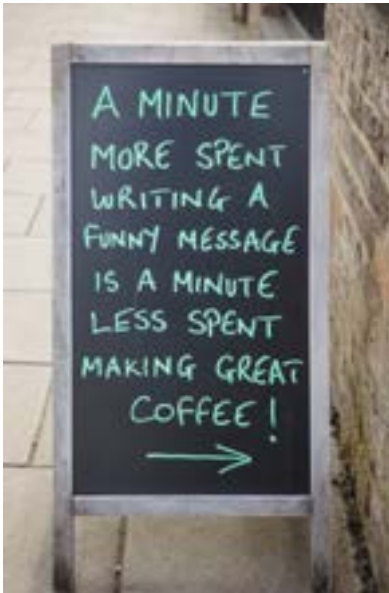 A MINUTE
MORE SPENT
WRITING A
FUNNY MESSAGE
IS A MINUTE
LESS SPENT
MAKING GREAT
COFFEE!